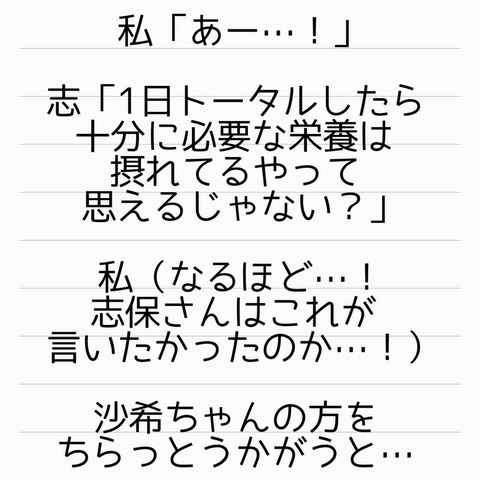 私「あー…！」
志「1日トータルしたら
十分に必要な栄養は
摂れてるやって
思えるじゃない？」
私（なるほど…！
志保さんはこれが
言いたかったのか…！）
沙希ちゃんの方を
ちらっとうかがうと…